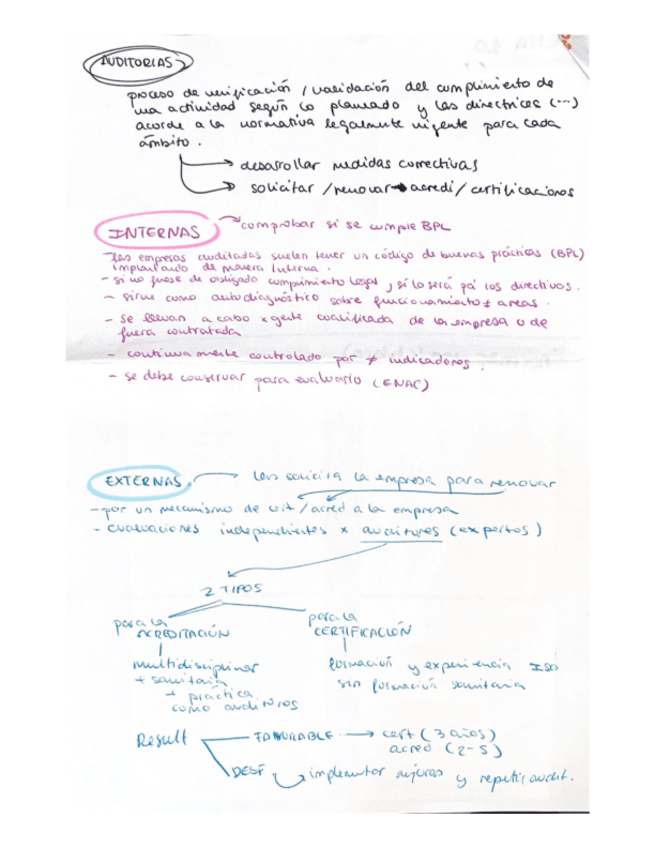 AUDITORIAS
proceso de verificación / validación del cumplimiento de
una actividad según lo planeado y las directrices (...)
acorde a la normativa legalmente vigente para cada
ámbito.
desarrollar medidas correctivas
solicitar / renovar acredi / certificaciones
INTERNAS comprobar si se cumple BPL
- las empresas auditadas suelen tener un código de buenas prácticas (BPL)
implantado de manera interna.
- si no fuese de obligado cumplimiento legal, sí lo será pa' los directivos.
- sirve como autodiagnóstico sobre funcionamiento ≠ areas.
- se llevan a cabo x gente cualificada de la empresa o de
fuera contratada
- continuamente controlado por ≠ indicadores
- se debe construar para evaluarlo (ENAC)
EXTERNAS las solicita la empresa para renovar
- por un mecanismo de cert/acred a la empresa
- evaluaciones independientes x auditores (expertos)
2 TIPOS
para la para la
ACREDITACIÓN CERTIFICACIÓN
multidisciplinar formación y experiencia ISO
+ sanitaria sin formación sanitaria
+ práctica
como auditores
Result FAVORABLE cert (3 años)
acred (2-5)
DESF implementar mejoras y repetir audit.